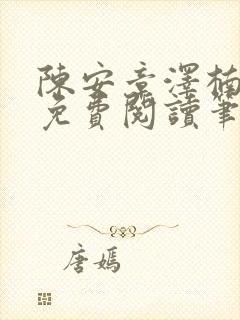 陳安意澤楠
免費閱讀筆
唐嫣